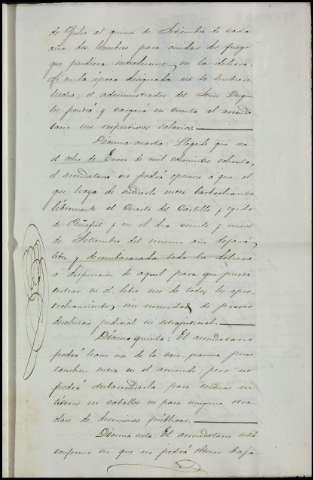 de Julio al quince de Setiembre de cada
año dos hombres para cuidar del fuego
que pudiera involucrarse en la dehesa.
Si en la época designada no lo hubiere
hecho, el administrador del Señor Duque
los pondrá y cargará en cuenta al arrenda
tario sus respectivos salarios.
Décima cuarta: Llegado que sea
el mes de Enero de mil ochocientos ochenta,
el arrendatario no podrá oponerse a que el
que haya de sucederle entre barbechando
libremente el Cuarto del Castillo y egido
de y en el dia veinte y nueve
de Setiembre del mismo año dejará
libre y desembarazada toda la dehesa
a disposicion de aquel para que pueda
entrar en el libre uso de todos los apro-
vechamientos, sin necesidad de previo
desahucio judicial ni extrajudicial.
Décima quinta: El arrendatario
podrá hacer uso de la casa para
en el arriendo pero no
podrá subarrendarla para
ni para ninguna otra
clase de
Décima sesta: El arrendatario está
conforme en que no podrá alegar baja